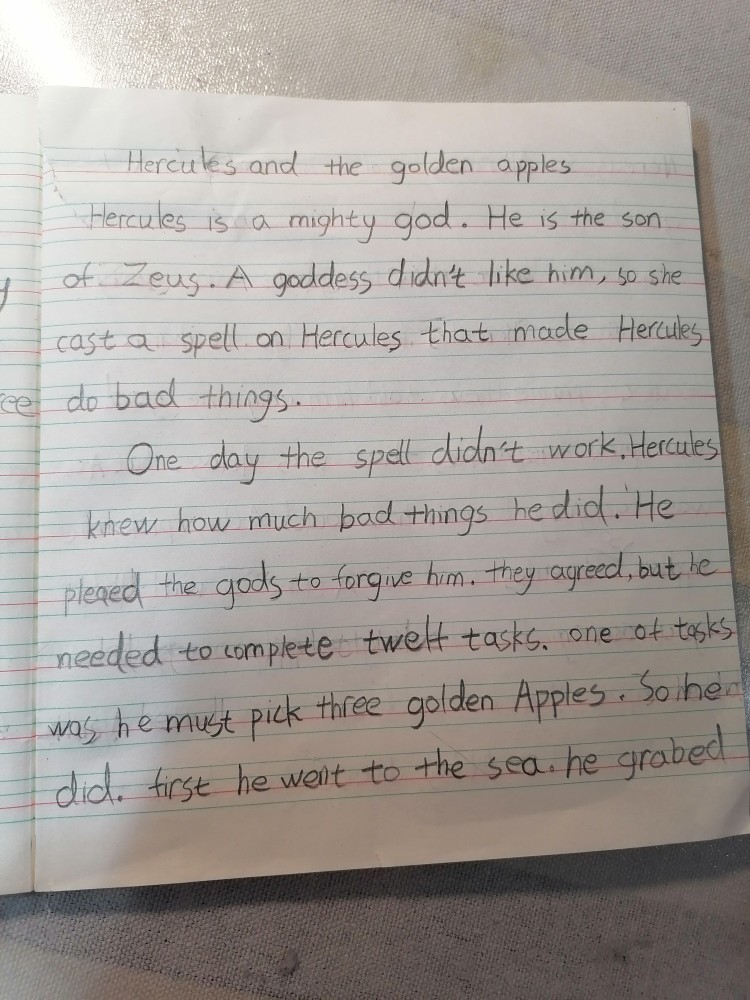 Hercules and the golden apples
Hercules is a mighty god. He is the son
of Zeus. A goddess didn't like him, so she
cast a spell on Hercules that made Hercules
ee do bad things.
One day the spell didn't work. Hercules
knew how much bad things he did. He
pleaed the gods to forgive him. they agreed, but he
needed to complete twelt tasks. one of tasks
was he must pick three golden Apples. So he
did. first he went to the sea. he grabed